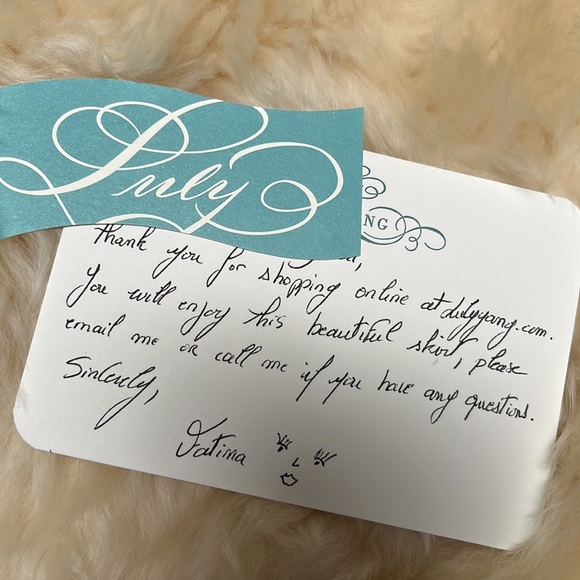 July
NG
Thank you for shopping online at lulyyang.com.
You will enjoy this beautiful skirt, please
email me or call me if you have any questions.
Sincerely,
Fatima